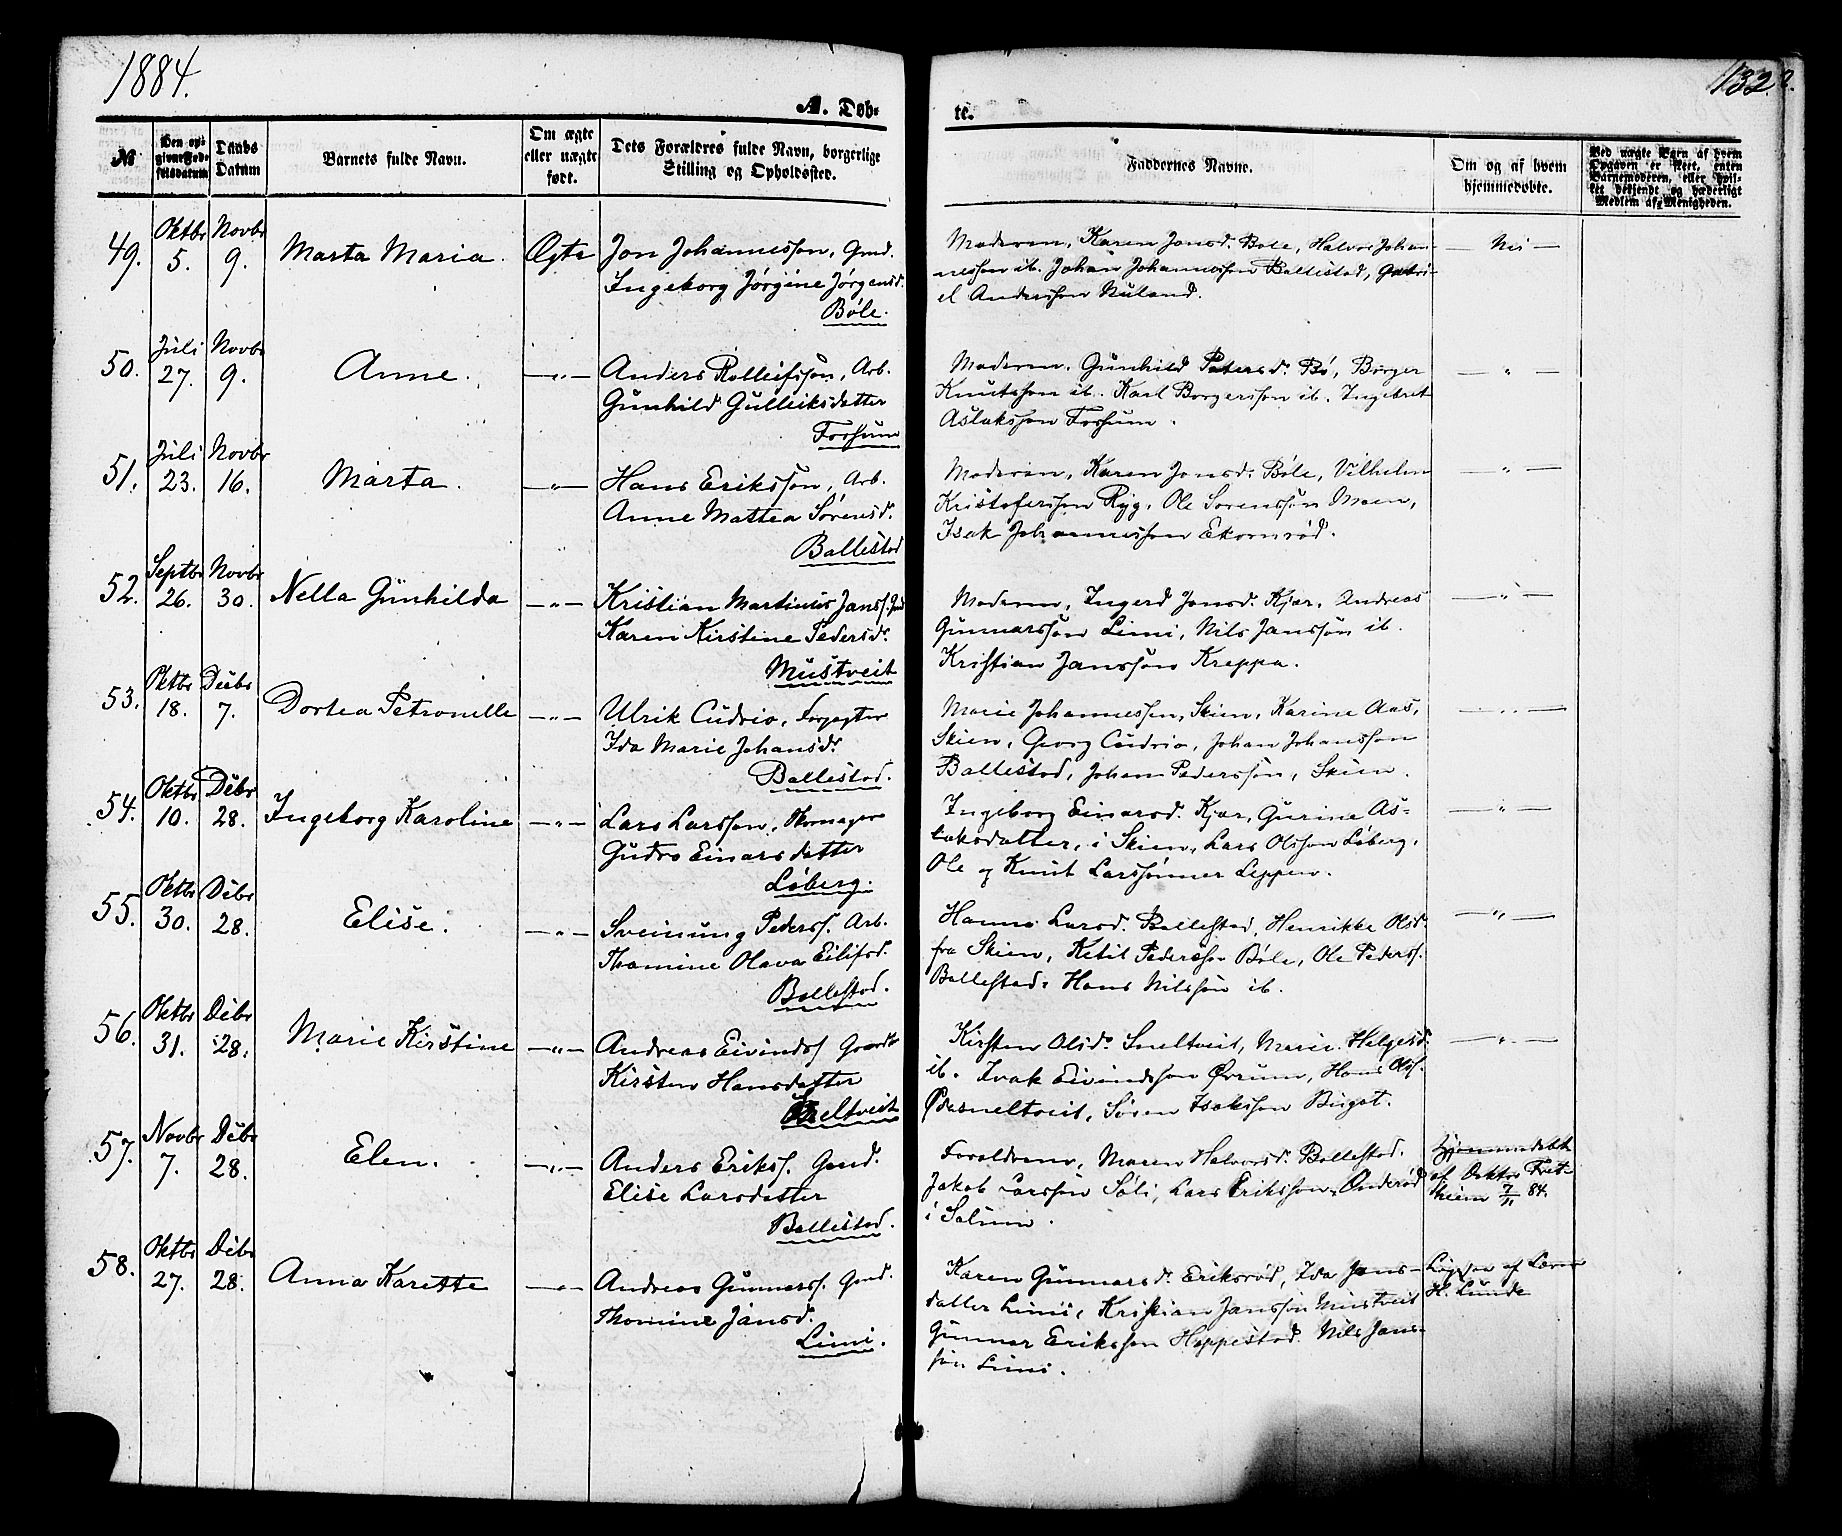 1884.
132.
A. Døb-
te.
№
Den opgivne Fødselsdatum
Daabs Datum
Barnets fulde Navn.
Om ægte eller uægte født.
Dets Forældres fulde Navn, borgerlige Stilling og Opholdssted.
Faddernes Navne.
Om og af hvem hjemmedøbte.
Ved uægte Børn af hvem Opgaven er skeet, enten Barnemoderen, eller hvilket bekjendt og hæderligt Medlem af Menigheden.
49. Oktbr 5. Novbr 9. Marta Maria. Ægte Jon Johannesson, Gmd.
Ingeborg Jørgine Jørgensd.
Bøle.
Moderen, Karen Jonsd. Bøle, Halvor Johan-
nesson ib. Johan Johannesson Ballestad, Gabri-
el Andersson Nuland.
— Nei —
50. Juli 27. Novbr 9. Anne. —"— Anders Rolleifsson, Arb.
Gunhild Gulleiksdatter
Fossum
Moderen, Gunhild Petersd. Bø, Borger
Knutsson ib. Karl Borgersson ib. Ingebret
Aslaksson Fossum.
— " —
51. Juli 23. Novbr 16. Marta. —"— Hans Eriksson, Arb.
Anne Mattea Sørensd.
Ballestad
Moderen, Karen Jonsd. Bøle, Vilhelm
Kristofersson Ryg, Ole Sørensson Moen,
Isak Johannesson Ekornrød.
— " —
52. Septbr 26. Novbr 30. Nella Gunhilda —"— Kristian Martinus Janss. Gmd
Karen Kirstine Pedersd.
Mustveit
Moderen, Ingerd Jonsd. Kjær, Andreas
Gunnarsson Limi, Nils Jansson ib.
Kristian Jansson Kreppa.
— " —
53. Oktbr 18. Decbr 7. Dortea Petronelle —"— Ulrik Cudrio, Forpagter
Ida Marie Johansd.
Ballestad.
Marie Johannessen, Skien, Karine Aas,
Skien, Georg Cudrio, Johan Johansson
Ballestad, Johan Pedersson, Skien.
— " —
54. Oktbr 10. Debr 28. Ingeborg Karoline —"— Lars Larsson,
Gudro Einarsdatter
Løberg.
Ingeborg Einarsd. Kjær, Gurine As-
laksdatter, i Skien, Lars Olsson Løberg,
Ole og Knut Larssønner Leppen.
— " —
55. Oktbr 30. Debr 28. Elise. —"— Sveinung Pederss. Arb.
Thomine Olava Eilifsd.
Ballestad.
Hanna Larsd. Ballestad, Henrikke Olsd.
fra Skien, Ketil Pedersson Bøle, Ole Pederss.
Ballestad, Hans Nilsson ib.
— " —
56. Oktbr 31. Debr 28. Marie Kirstine —"— Andreas Eivinds
Kirsten Hansdatter
Sneltveit
Kirsten Olsd. Sneltveit, Marie Helgesd.
ib. Isak Eivindsson Ørrum, Hans Olss.
Sneltveit, Søren Isaksson
— " —
57. Novbr 7. Debr 28. Elen. —"— Anders Erikss. Gmd.
Elise Larsdatter
Ballestad.
Foreldrene, Maren Halvorsd. Ballestad.
Jakob Larsson Søli, Lars Eriksson Onderød
i Solum.
Hjemmedøbt
af Doktor
7/11 84.
58. Oktbr 27. Debr 28. Anna Karette —"— Andreas Gunnarss. Gmd.
Thomine Jansd.
Limi.
Karen Gunnarsd. Eriksrød, Ida Jans-
datter Limi, Kristian Jansson Mustveit
Gunnar Eriksson Heppestad. Nils Jans-
søn Limi.
af Lærer
H. Lunde